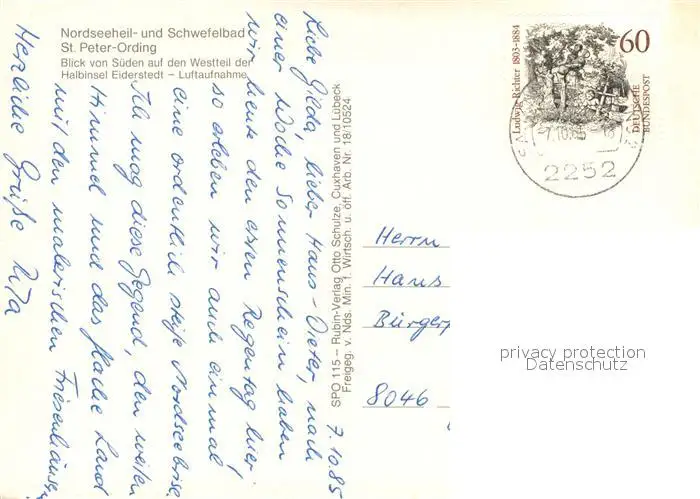 Nordseeheil- und Schwefelbad
St. Peter-Ording
Blick von Süden auf den Westteil der
Halbinsel Eiderstedt – Luftaufnahme
7.10.85
Liebe Gilda, lieber Hans-Dieter, nach
einer Woche Sonnenschein haben
wir heute den ersten Regentag hier;
so erleben wir auch einmal
eine ordentlich steife Nordseebrise.
Ich mag diese Gegend, den weiten
Himmel und das flache Land
mit den malerischen Friesenhäusern
Herzliche Grüße Uta
SPO 115 – Rubin-Verlag Otto Schulze, Cuxhaven und Lübeck
Freigeg. v. Nds. Min. f. Wirtsch. u. öff. Arb. Nr. 18/10524
Ludwig Richter 1803-1884
60
DEUTSCHE
BUNDESPOST
2252
Herrn
Hans
Bürger
8046
privacy protection
Datenschutz